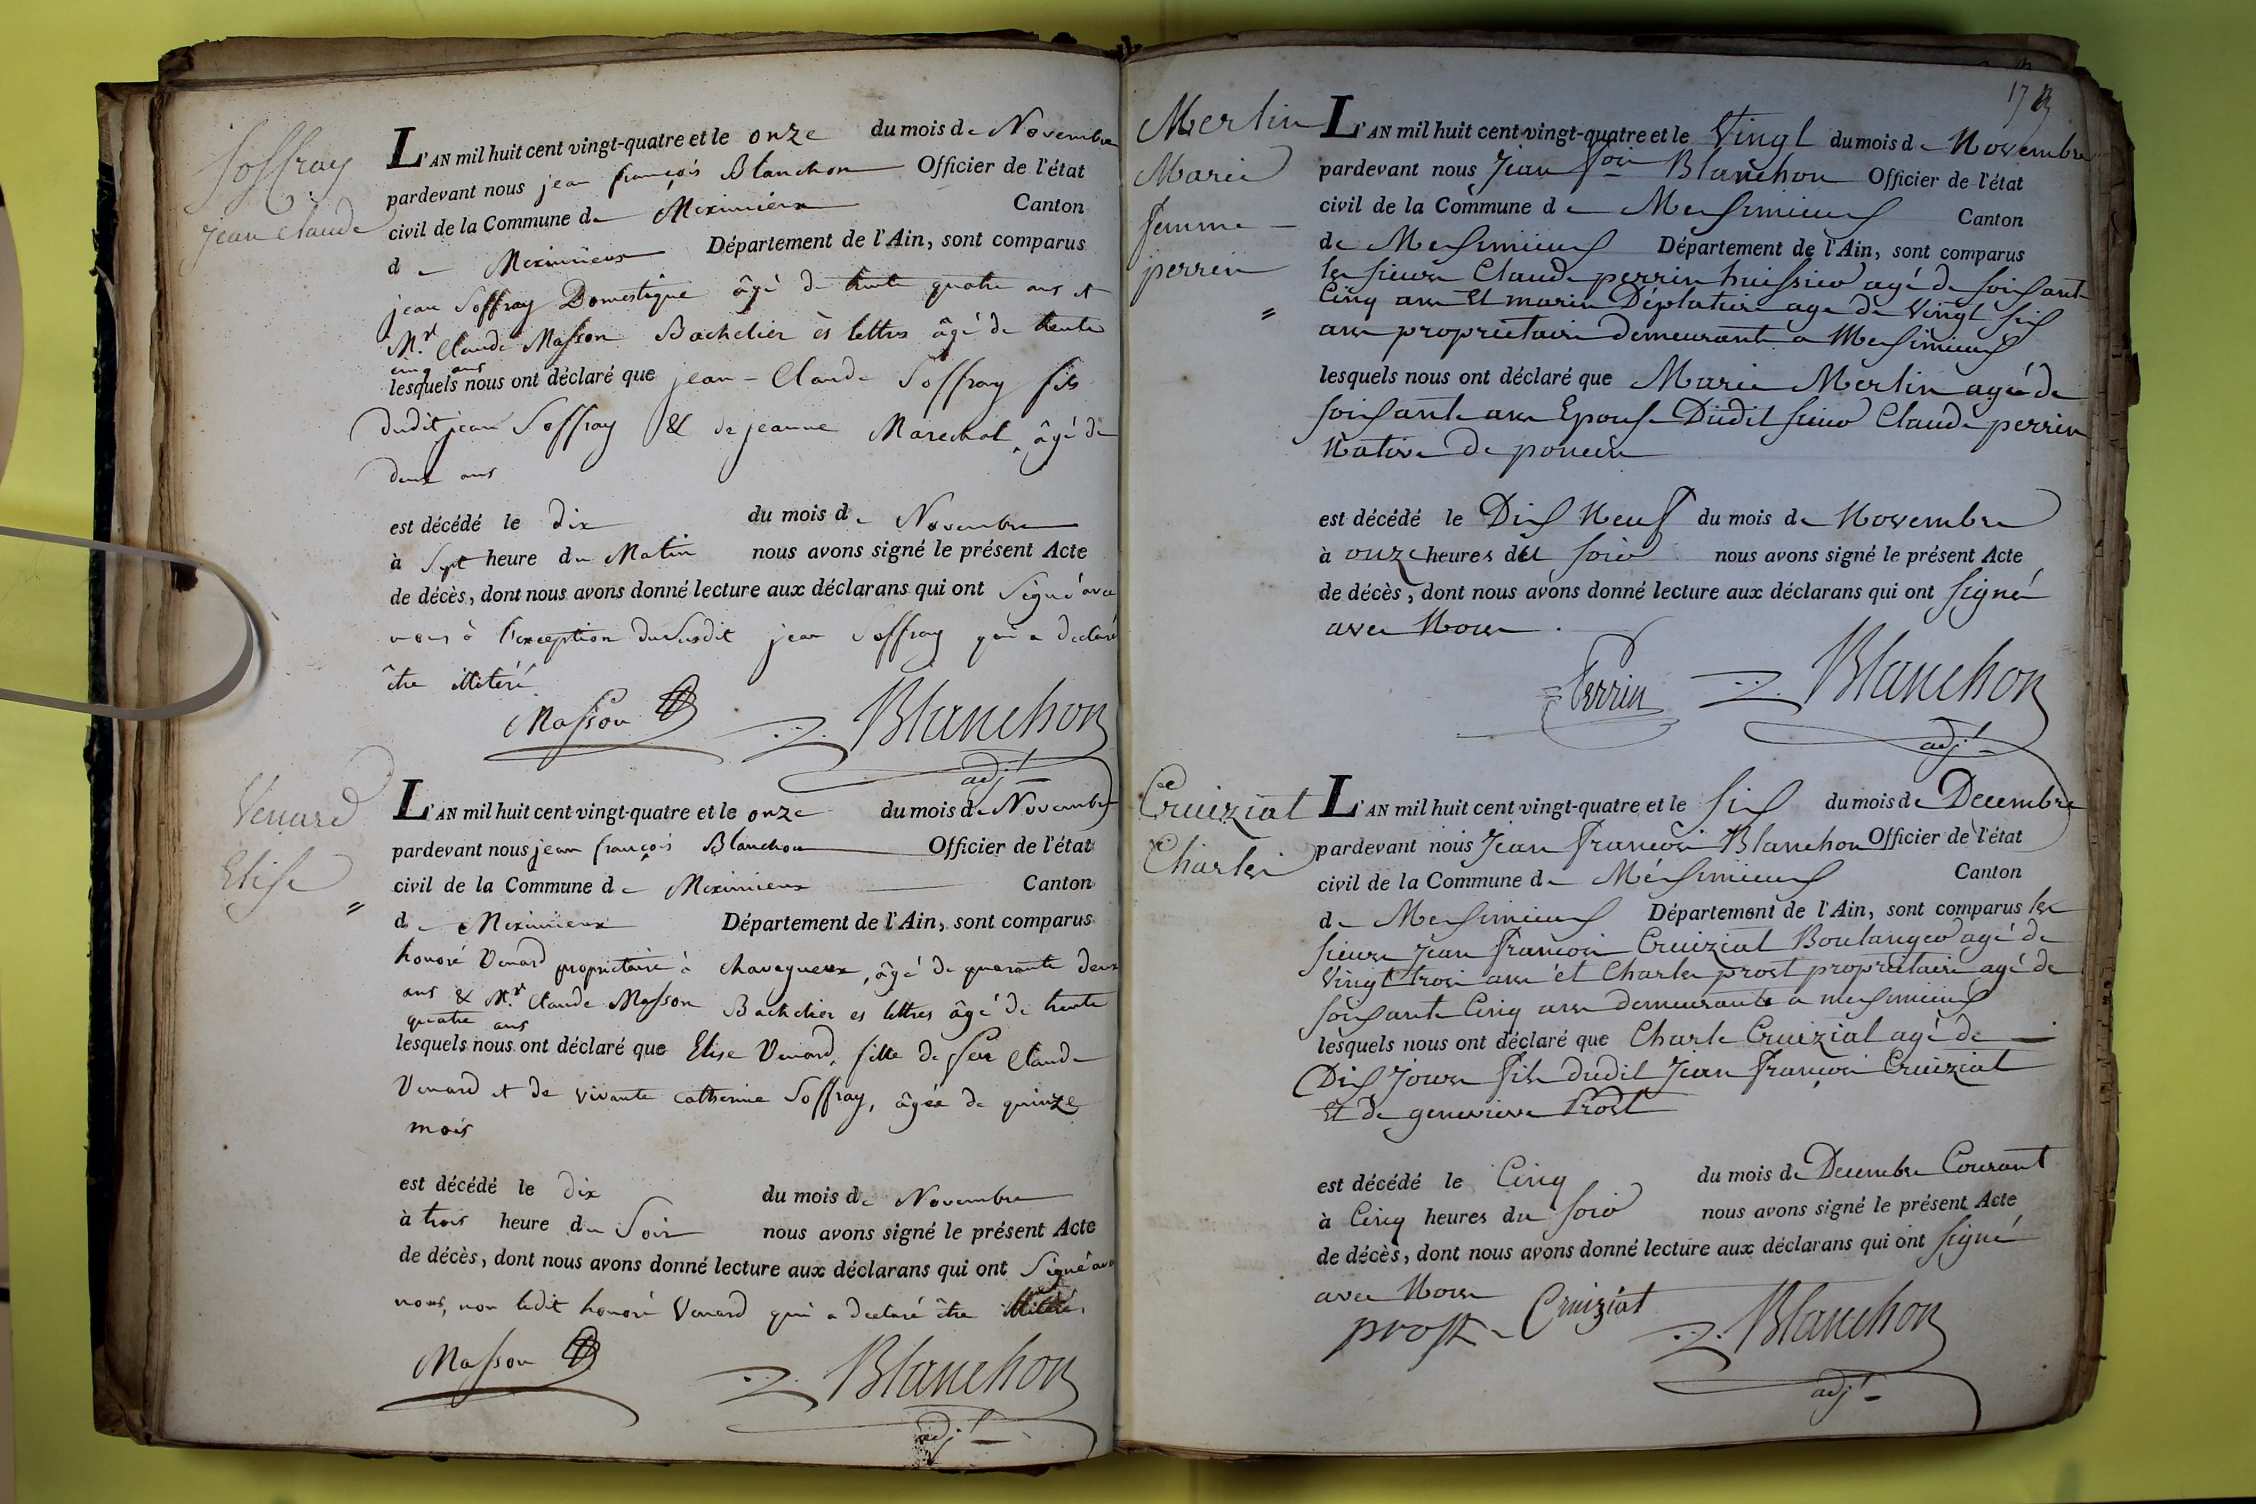 Soffray
jean Claude
L'AN mil huit cent vingt-quatre et le onze du mois de Novembre
pardevant nous jean françois Blanchon Officier de l'état
civil de la Commune de Meximieux Canton
de Meximieux Département de l'Ain, sont comparus
jean Soffray Domestique âgé de trente quatre ans et
Mr. Claude Masson Bachelier ès lettres âgé de trente
cinq ans
lesquels nous ont déclaré que jean-Claude Soffray fils
dudit jean Soffray & de jeanne Marechal, âgé de
deux ans
est décédé le dix du mois de Novembre
à Sept heure du Matin nous avons signé le présent Acte
de décès, dont nous avons donné lecture aux déclarans qui ont Signé avec
nous à l'exception du Susdit jean Soffray qui a declaré
être illitéré
Masson Blanchon
adjt
Venard
Elise
L'AN mil huit cent vingt-quatre et le onze du mois de Novembre
pardevant nous jean françois Blanchon Officier de l'état
civil de la Commune de Meximieux Canton
de Meximieux Département de l'Ain, sont comparus
honoré Venard propriétaire à chavagneux, âgé de quarante deux
ans & Mr. Claude Masson Bachelier es lettres âgé de trente
quatre ans
lesquels nous ont déclaré que Elise Venard, fille de feu Claude
Venard et de vivante catherine Soffray, âgée de quinze
mois
est décédé le dix du mois de Novembre
à trois heure du Soir nous avons signé le présent Acte
de décès, dont nous avons donné lecture aux déclarans qui ont Signé avec
nous, non ledit honoré Venard qui a declaré être illitéré.
Masson Blanchon
adjt
173
Merlin
Marie
femme
perrin
L'AN mil huit cent vingt-quatre et le Vingt du mois de Novembre
pardevant nous Jean fois Blanchon Officier de l'état
civil de la Commune de Mersimieux Canton
de Mersimieux Département de l'Ain, sont comparus
les sieurs Claude perrin huissier agé de soixante
Cinq ans Et marin Déplatier age de Vingt six
ans proprietaire demeurants a Mersimieux
lesquels nous ont déclaré que Marie Merlin agé de
soixante ans Epouse Dudit sieur Claude perrin
Native de poncin
est décédé le Dix Neuf du mois de Novembre
à onze heures du soir nous avons signé le présent Acte
de décès, dont nous avons donné lecture aux déclarans qui ont signé
avec Nous.
Perrin Blanchon
adjt
Cruiziat
Charles
L'AN mil huit cent vingt-quatre et le six du mois de Decembre
pardevant nous Jean François Blanchon Officier de l'état
civil de la Commune de Mérsimieux Canton
de Mersimieux Département de l'Ain, sont comparus les
sieurs Jean François Cruiziat Boulanger agé de
Vingt trois ans et Charles prost propriétaire agé de
soixante Cinq ans demeurants a mersimieux
lesquels nous ont déclaré que Charle Cruiziat agé de
Dix Jours fils dudit Jean François Cruiziat
Et de genevieve Prost
est décédé le Cinq du mois de Decembre Courant
à Cinq heures du soir nous avons signé le présent Acte
de décès, dont nous avons donné lecture aux déclarans qui ont signé
avec Nous
prost Cruiziat Blanchon
adjt